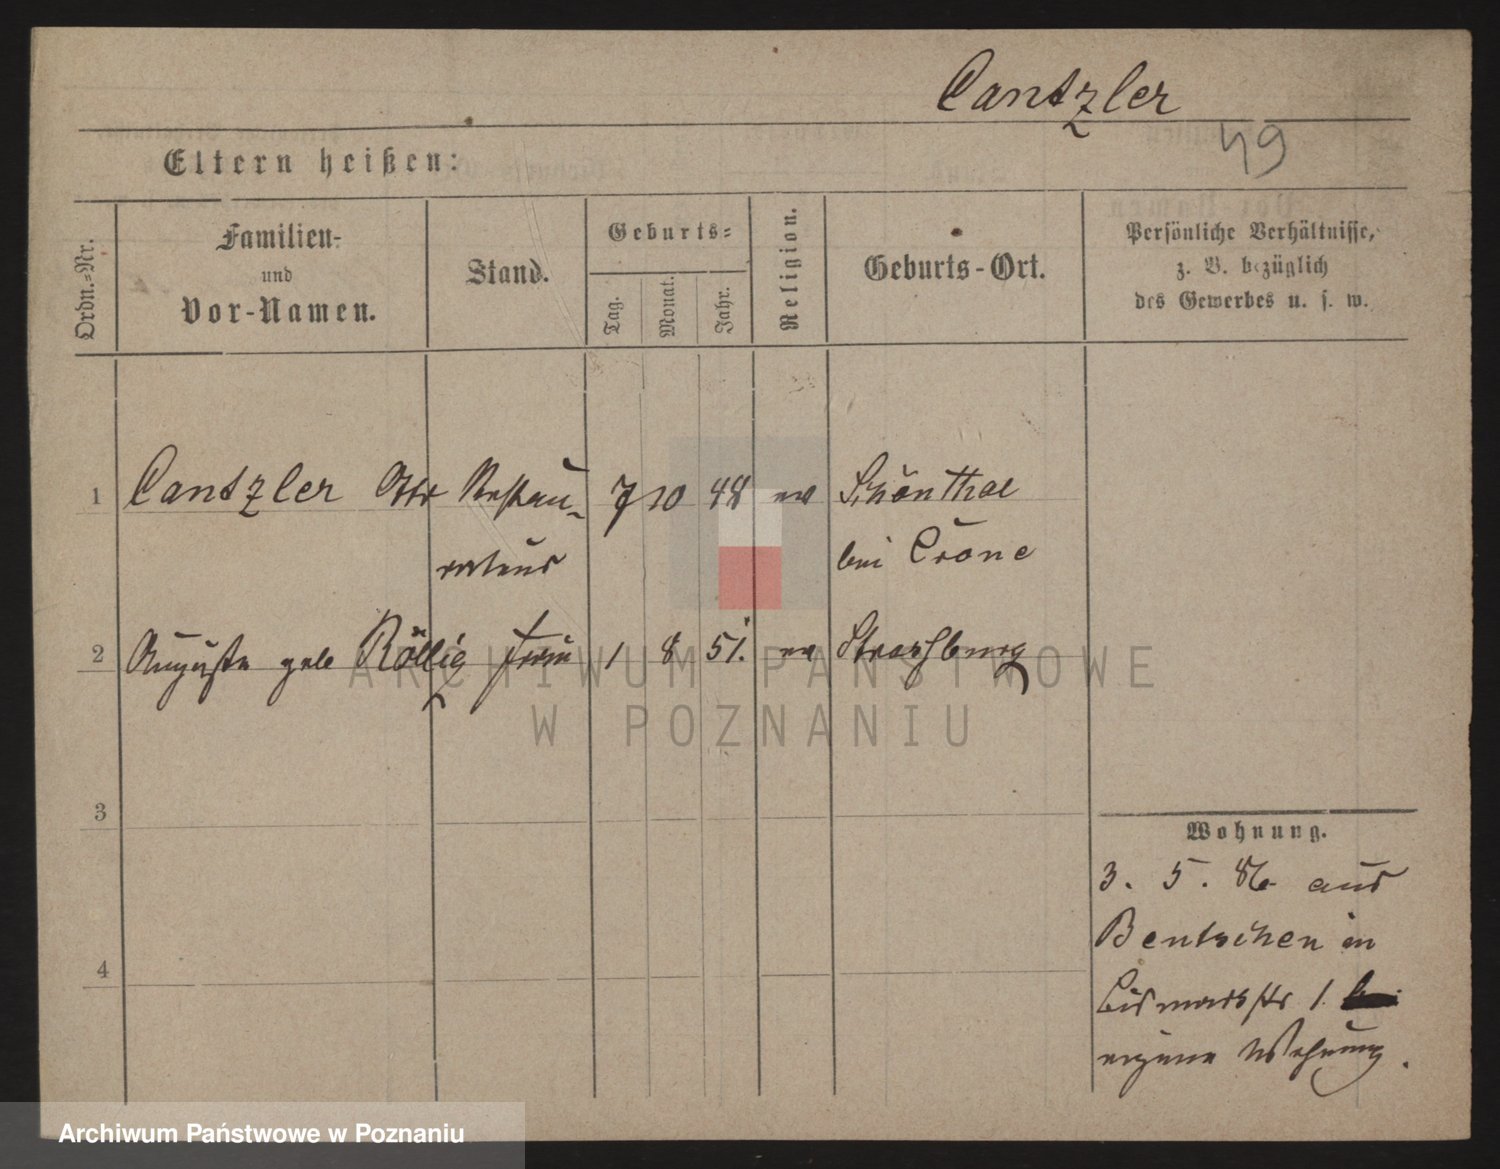 Cantzler
49
Eltern heißen:
Ordn.-Nr.
Familien-
und
Vor-Namen.
Stand.
Geburts-
Tag.
Monat.
Jahr.
Religion.
Geburts-Ort.
Persönliche Verhältnisse,
z. B. bezüglich
des Gewerbes u. s. w.
1 Cantzler Otto Restau- 7 10 48 ev Schönthal
rateur bei Crone
2 Auguste geb Röllig Frau 1 8 51. ev Strassburg
ARCHIWUM PAŃSTWOWE
W POZNANIU
3
Wohnung.
3. 5. 86 aus
Bentschen in
4
Bismarkstr 1.
eigene Wohnung.
Archiwum Państwowe w Poznaniu